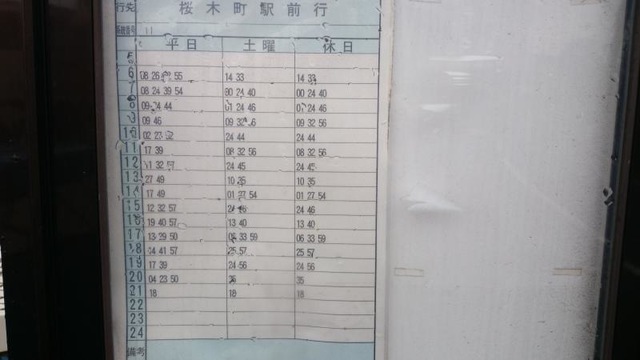 行先 桜木町駅前行
系統番号 11
平日 土曜 休日
5
6 08 26 55 14 33 14 33
7 08 24 39 54 24 40 00 24 40
8 09 24 44 01 24 46 01 24 46
9 09 46 09 32 56 09 32 56
10 02 27 24 44 24 44
11 17 39 08 32 56 08 32 56
12 32 57 24 45 24 45
13 27 49 10 35 10 35
14 17 49 01 27 54 01 27 54
15 12 32 57 24 46 24 46
16 19 40 57 13 40 13 40
17 13 29 50 06 33 59 06 33 59
18 14 41 57 25 57 25 57
19 17 39 24 56 24 56
20 04 23 50 35
21 18 18 18
22
23
24
備考